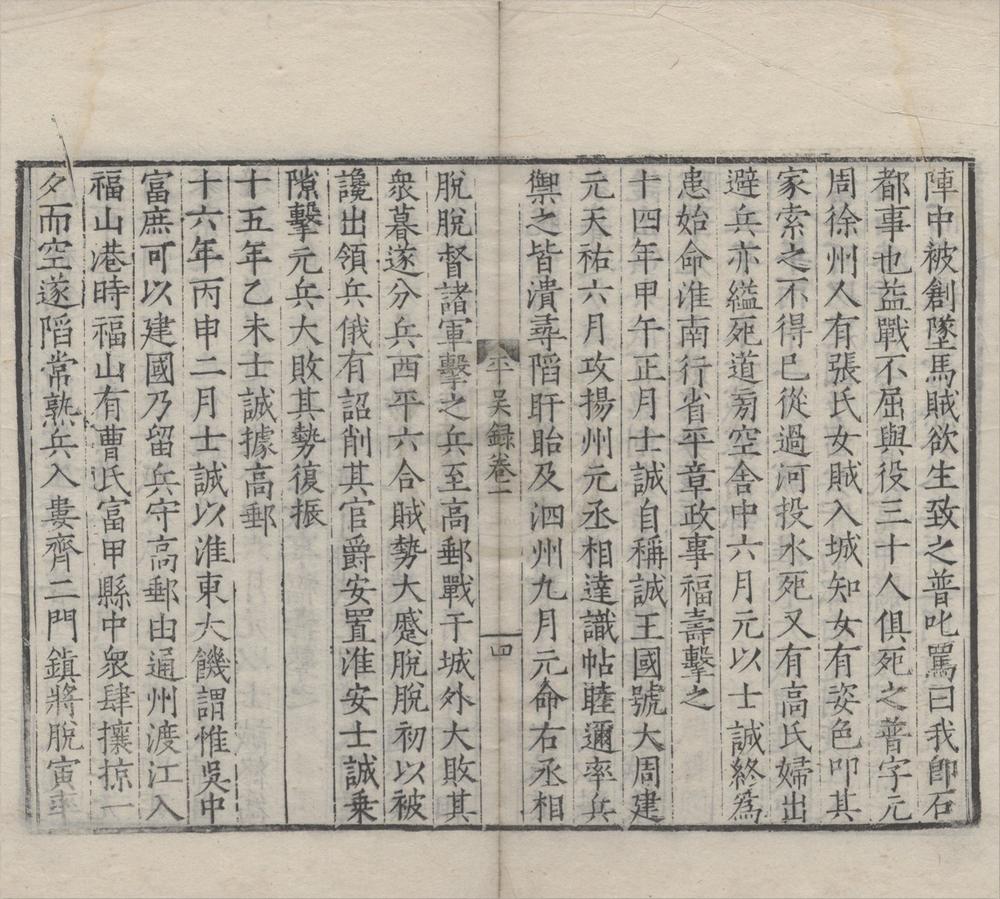 陣中被創墜馬賊欲生致之普叱罵曰我卽石
都事也益戰不屈與役三十人俱死之普字元
周徐州人有張氏女賊入城知女有姿色叩其
家索之不得已從過河投水死又有高氏婦出
避兵亦縊死道旁空舍中六月元以士誠終爲
患始命淮南行省平章政事福壽擊之
十四年甲午正月士誠自稱誠王國號大周建
元天祐六月攻揚州元丞相達識帖睦邇率兵
禦之皆潰尋陷盱眙及泗州九月元命右丞相
平吴録卷一
四
脫脫督諸軍擊之兵至高郵戰于城外大敗其
衆暮遂分兵西平六合賊勢大蹙脫脫初以被
讒出領兵俄有詔削其官爵安置淮安士誠乗
隙擊元兵大敗其勢復振
十五年乙未士誠據高郵
十六年丙申二月士誠以淮東大饑謂惟吳中
富庶可以建國乃留兵守高郵由通州渡江入
福山港時福山有曹氏富甲縣中衆肆攘掠一
夕而空遂陷常熟兵入婁齊二門鎮將脫寅率